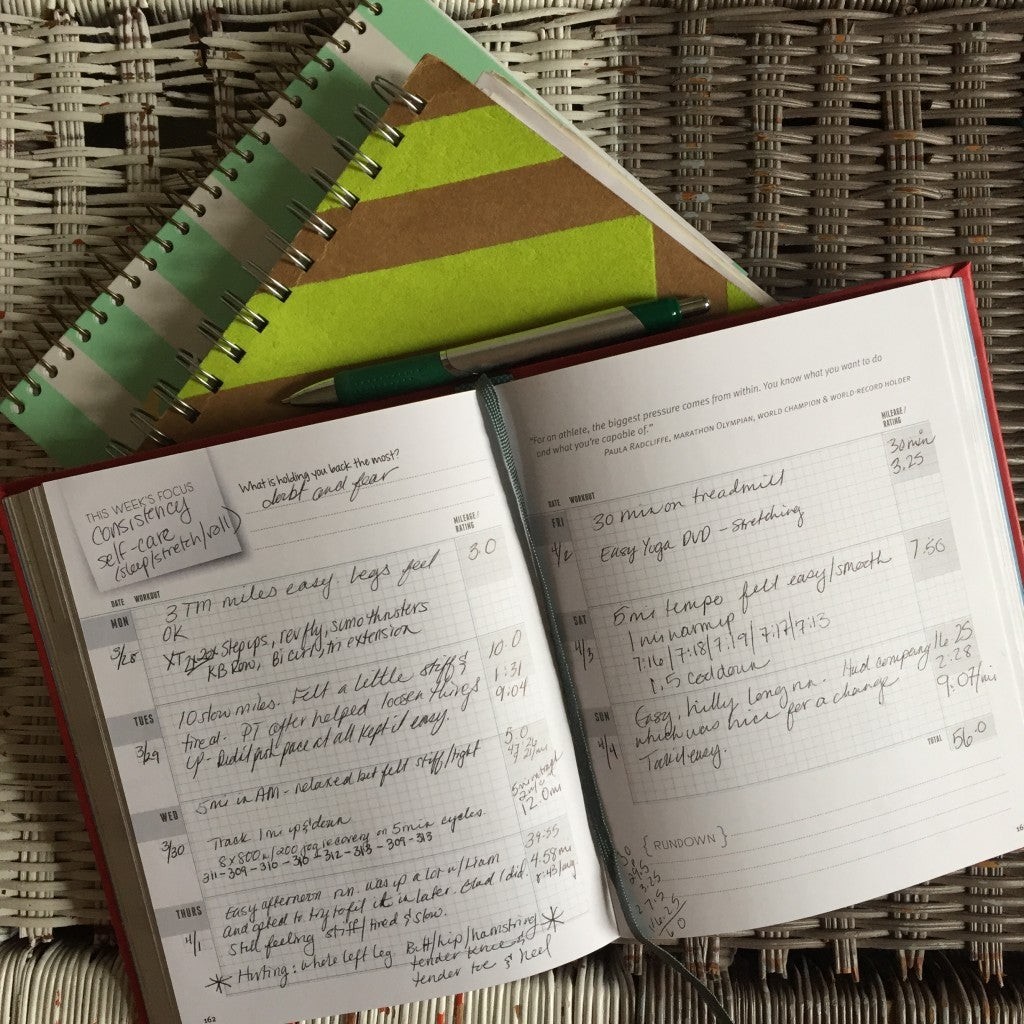 THIS WEEK'S FOCUS
Consistency
self-care
(sleep/stretch/roll)
What is holding you back the most?
debt and fear
DATE WORKOUT MILEAGE / RATING
MON 3/28
3 TM miles easy. Legs feel 3.0
OK
XT Stepups, rev fly, sumo thrusters
KB Rows, Bi curl, tri extension
TUES 3/29
10 slow miles. Felt a little stiff & 10.0
tired. PT after helped loosen things 1:31
up - Didn't push pace at all kept it easy. 9:04
WED 3/30
5mi in AM - relaxed but felt stiff/tight 5.0
Track 1mi up & down 12.0mi
8x800m/200 jog recovery on 5min cycles.
311-309-310-310-312-313-309-313
THURS 4/1
Easy afternoon run. was up a lot w/Liam 39:55
and opted to try to fit it in later. Glad I did. 4.58mi
Still feeling stiff/tired & slow. 8:43/avg.
* Hurting: whole left leg Butt/hip/hamstring *
tender
tender toe & heel
162
"For an athlete, the biggest pressure comes from within. You know what you want to do
and what you're capable of."
PAULA RADCLIFFE, MARATHON OLYMPIAN, WORLD CHAMPION & WORLD-RECORD HOLDER
DATE WORKOUT MILEAGE / RATING
FRI
30 min on treadmill 30min
3.25
Easy Yoga DVD - Stretching
SAT 4/3
5mi tempo felt easy/smooth 7.50
1 mi warmup
7:16/7:18/7:19/7:17/7:13
1.5 cooldown
SUN 4/4
Easy, hilly long run. Had company 16.25
which was nice for a change 2:28
Took it easy. 9:07/mi
TOTAL 56.0
{RUNDOWN}